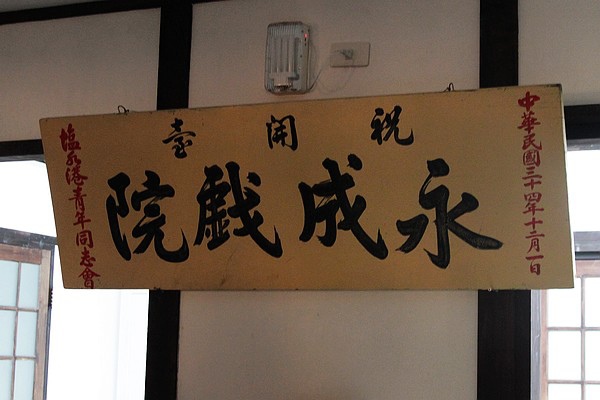 中華民國三十四年十二月一日
祝開臺
永成戯院
塩水港青年同志會